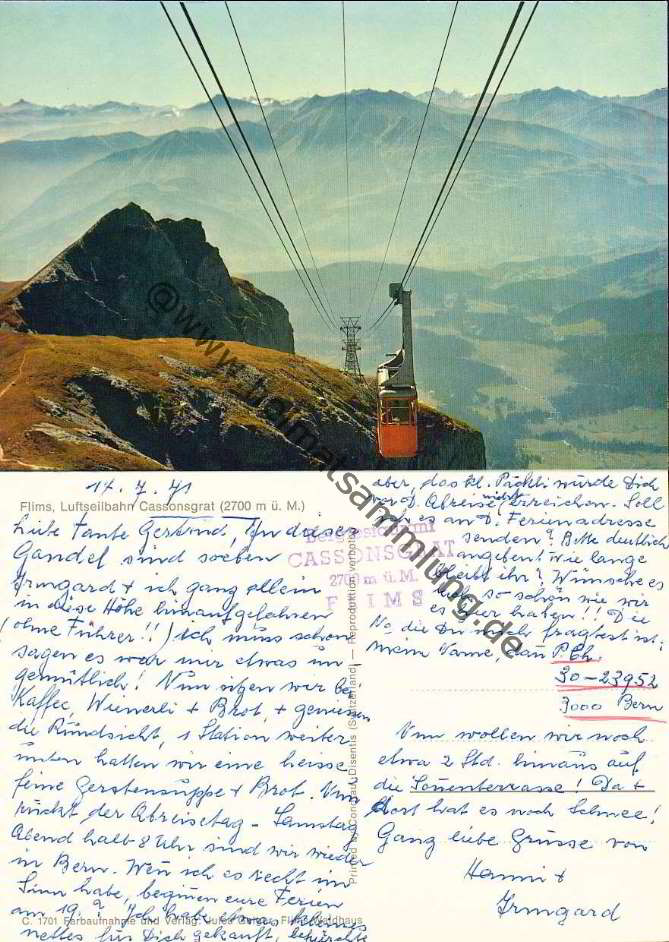 @www.heimatsammlung.de
14. 7. 71
Flims, Luftseilbahn Cassonsgrat (2700 m ü. M.)
Liebe Tante Gertrud, In dieser
Gondel sind soeben
Irmgard + ich ganz allein
in diese Höhe hinaufgefahren
(ohne Führer!!) ich muss schon
sagen es war mir etwas un
gemütlich! Nun sitzen wir bei
Kaffee, Wienerli + Brot, + geniessen
die Rundsicht, 1 Station weiter
unten hatten wir eine heisse
feine Gerstensuppe + Brot. Nun
rückt der Abreisetag - Samstag
Abend halb 8 Uhr sind wir wieder
in Bern. Wenn ich es recht im
Sinn habe, beginnen eure Ferien
am 19. Ich habe etwas kleines
nettes für Dich gekauft, befürchte
C. 1701 Farbaufnahme und Verlag: Jules Geiger, Flims-Waldhaus
Printed by Condrau, Disentis (Switzerland) — Reproduktion verboten
CASSONSGRAT
2700 m ü. M.
FLIMS
aber, das kl. Päckli würde Dich
vor d. Abreise nicht erreichen. Soll
ich es an D. Ferienadresse
senden? Bitte deutlich
angeben! Wie lange
bleibt ihr? Wünsche es
so schön wie wir
es hier haben!! Die
No. die Du mich fragtest ist:
mein Name, dann P.Ch.
30-23952
3000 Bern
Nun wollen wir noch
etwa 2 Std. hinaus auf
die Sonnenterrasse! Da +
dort hat es noch Schnee!
Ganz liebe Grüsse von
Hanni +
Irmgard